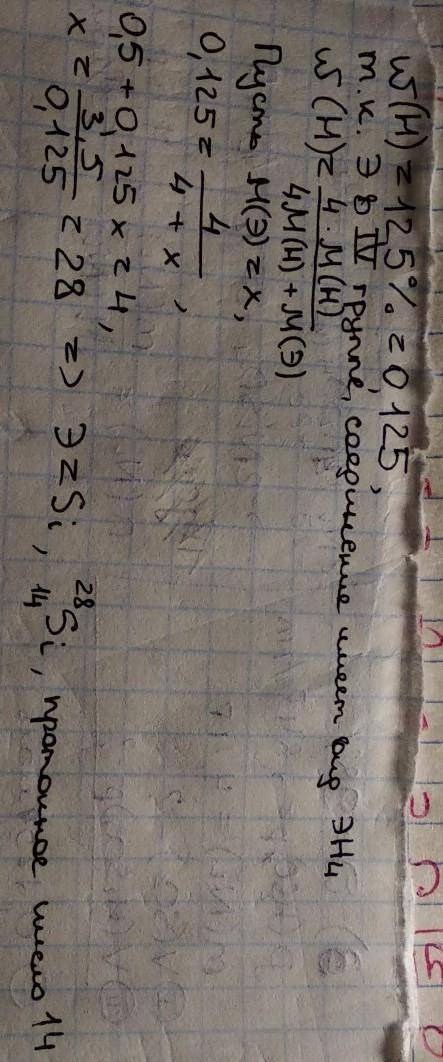 w(H) = 12,5% = 0,125,
т.к. Э в IV группе, соединение имеет вид ЭH₄
w(H) = 4·M(H) / 4M(H) + M(Э)
Пусть M(Э) = x,
0,125 = 4 / 4 + x ,
0,5 + 0,125 x = 4,
x = 3,5 / 0,125 = 28 => Э = Si, ²⁸₁₄Si, протонное число 14